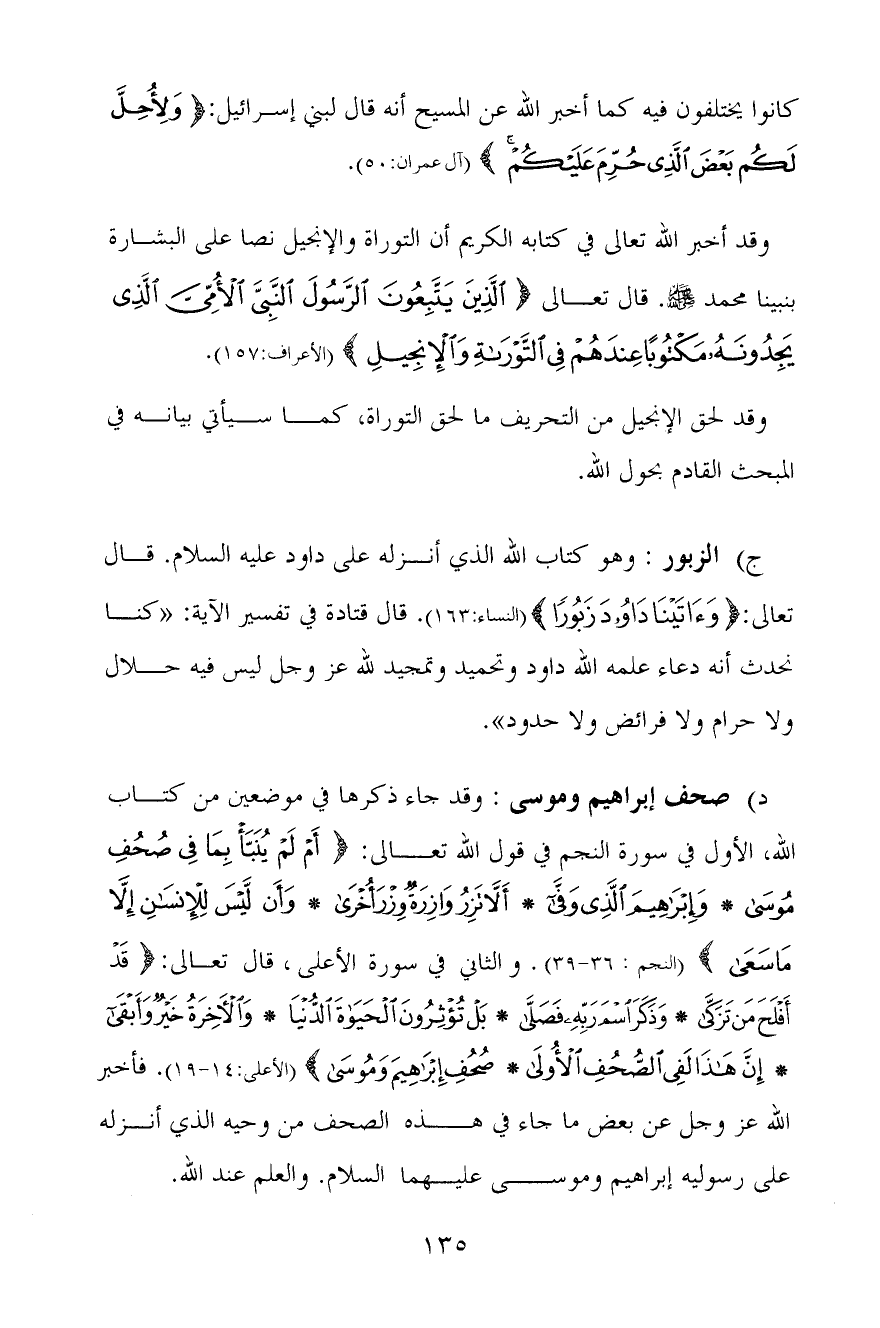 كانوا يختلفون فيه كما أخبر الله عن المسيح أنه قال لبني إسرائيل: ﴿ وَلِأُحِلَّ
لَكُم بَعْضَ ٱلَّذِى حُرِّمَ عَلَيْكُمْ ۚ ﴾ (آل عمران: ٥٠).
وقد أخبر الله تعالى في كتابه الكريم أن التوراة والإنجيل نصا على البشارة
بنبينا محمد ﷺ. قال تعالى ﴿ ٱلَّذِينَ يَتَّبِعُونَ ٱلرَّسُولَ ٱلنَّبِىَّ ٱلْأُمِّىَّ ٱلَّذِى
يَجِدُونَهُۥ مَكْتُوبًا عِندَهُمْ فِى ٱلتَّوْرَىٰةِ وَٱلْإِنجِيلِ ﴾ (الأعراف: ١٥٧).
وقد لحق الإنجيل من التحريف ما لحق التوراة، كما سيأتي بيانه في
المبحث القادم بحول الله.
ج) الزبور : وهو كتاب الله الذي أنزله على داود عليه السلام. قال
تعالى: ﴿ وَءَاتَيْنَا دَاوُۥدَ زَبُورًا ﴾ (النساء: ١٦٣). قال قتادة في تفسير الآية: «كنا
نحدث أنه دعاء علمه الله داود وتحميد وتمجيد لله عز وجل ليس فيه حلال
ولا حرام ولا فرائض ولا حدود».
د) صحف إبراهيم وموسى : وقد جاء ذكرها في موضعين من كتاب
الله، الأول في سورة النجم في قول الله تعالى: ﴿ أَمْ لَمْ يُنَبَّأْ بِمَا فِى صُحُفِ
مُوسَىٰ * وَإِبْرَٰهِيمَ ٱلَّذِى وَفَّىٰٓ * أَلَّا تَزِرُ وَازِرَةٌ وِزْرَ أُخْرَىٰ * وَأَن لَّيْسَ لِلْإِنسَٰنِ إِلَّا
مَا سَعَىٰ ﴾ (النجم : ٣٦-٣٩). و الثاني في سورة الأعلى، قال تعالى: ﴿ قَدْ
أَفْلَحَ مَن تَزَكَّىٰ * وَذَكَرَ ٱسْمَ رَبِّهِۦ فَصَلَّىٰ * بَلْ تُؤْثِرُونَ ٱلْحَيَوٰةَ ٱلدُّنْيَا * وَٱلْءَاخِرَةُ خَيْرٌ وَأَبْقَىٰٓ
* إِنَّ هَٰذَا لَفِى ٱلصُّحُفِ ٱلْأُولَىٰ * صُحُفِ إِبْرَٰهِيمَ وَمُوسَىٰ ﴾ (الأعلى: ١٤-١٩). فأخبر
الله عز وجل عن بعض ما جاء في هذه الصحف من وحيه الذي أنزله
على رسوليه إبراهيم وموسى عليهما السلام. والعلم عند الله.
١٣٥